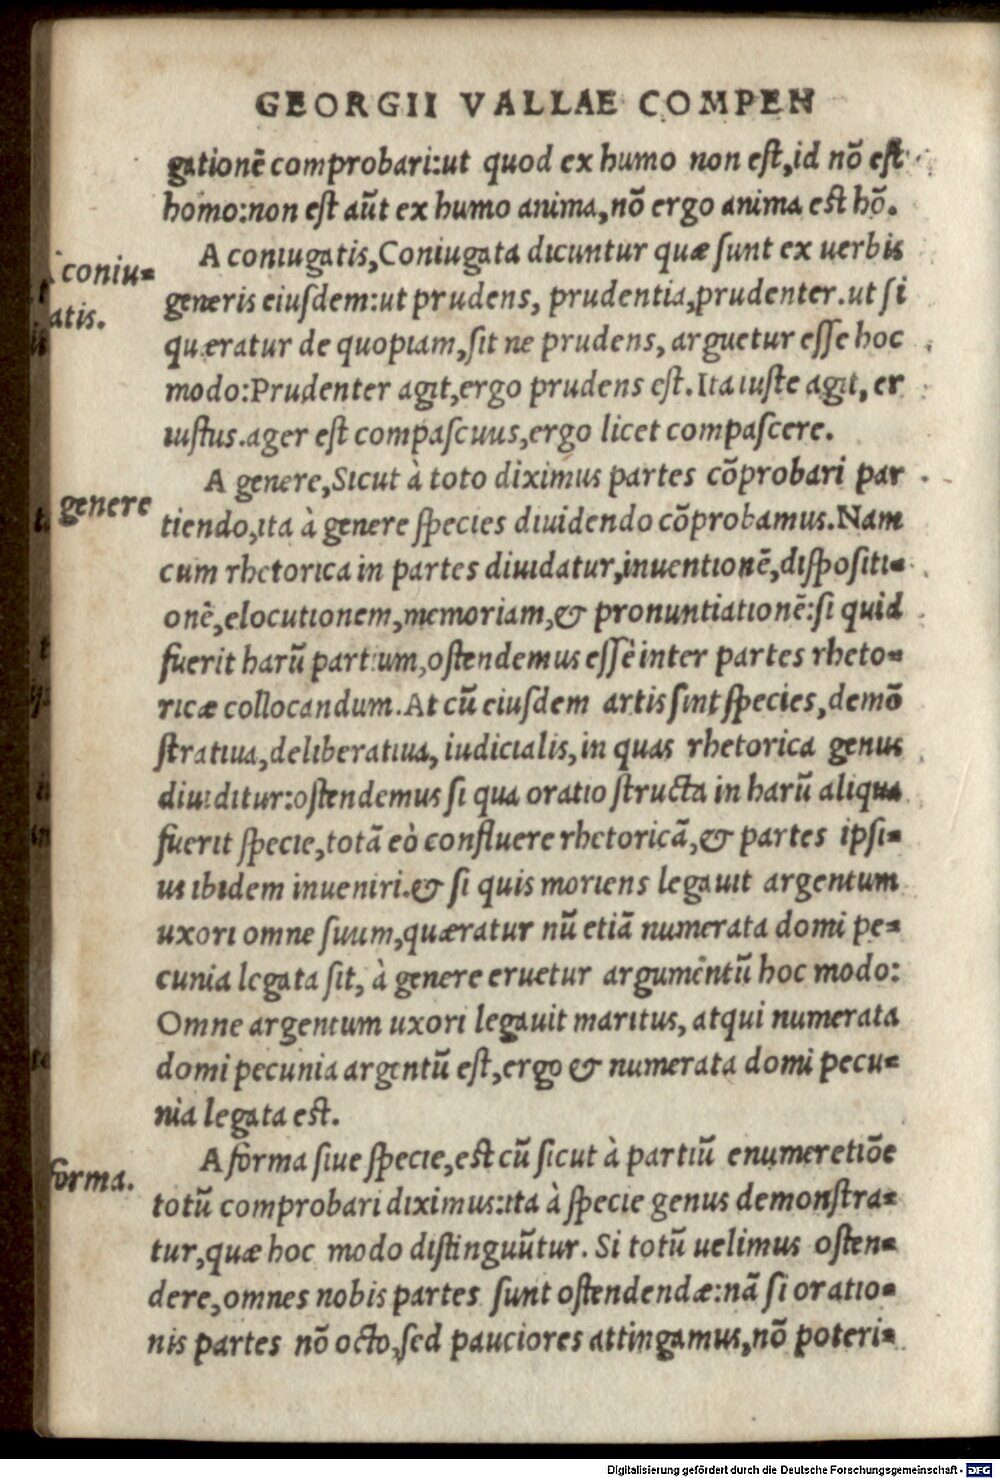 GEORGII VALLAE COMPEN
gationē comprobari:ut quod ex humo non eſt,id nō eſt
homo:non eſt aūt ex humo anima,nō ergo anima eſt hō.
A coniugatis,Coniugata dicuntur quæ ſunt ex uerbis
coniu-
generis eiuſdem:ut prudens, prudentia,prudenter.ut ſi
atis.
quæratur de quopiam,ſit ne prudens, arguetur eſſe hoc
modo:Prudenter agit,ergo prudens eſt.Ita iuſte agit, er
iuſtus.ager eſt compaſcuus,ergo licet compaſcere.
A genere,Sicut à toto diximus partes cōprobari par
genere
tiendo,ita à genere ſpecies diuidendo cōprobamus.Nam
cum rhetorica in partes diuidatur,inuentionē,diſpoſiti-
onē,elocutionem,memoriam,& pronuntiationē:ſi quid
fuerit harū partium,oſtendemus eſſe inter partes rheto-
ricæ collocandum.At cū eiuſdem artis ſint ſpecies,demō
ſtratiua,deliberatiua, iudicialis,in quas rhetorica genus
diuiditur:oſtendemus ſi qua oratio ſtructa in harū aliqua
fuerit ſpecie,totā eò confluere rhetoricā,& partes ipſi-
us ibidem inueniri.& ſi quis moriens legauit argentum
uxori omne ſuum,quæratur nū etiā numerata domi pe-
cunia legata ſit, à genere eruetur argumentū hoc modo:
Omne argentum uxori legauit maritus, atqui numerata
domi pecunia argentū eſt,ergo & numerata domi pecu-
nia legata eſt.
A forma ſiue ſpecie,eſt cū ſicut à partiū enumeretiōe
forma.
totū comprobari diximus:ita à ſpecie genus demonſtra-
tur,quæ hoc modo diſtinguūtur. Si totū uelimus oſten-
dere,omnes nobis partes ſunt oſtendendæ:nā ſi oratio-
nis partes nō octo,ſed pauciores attingamus,nō poteri-
Digitalisierung gefördert durch die Deutsche Forschungsgemeinschaft - DFG